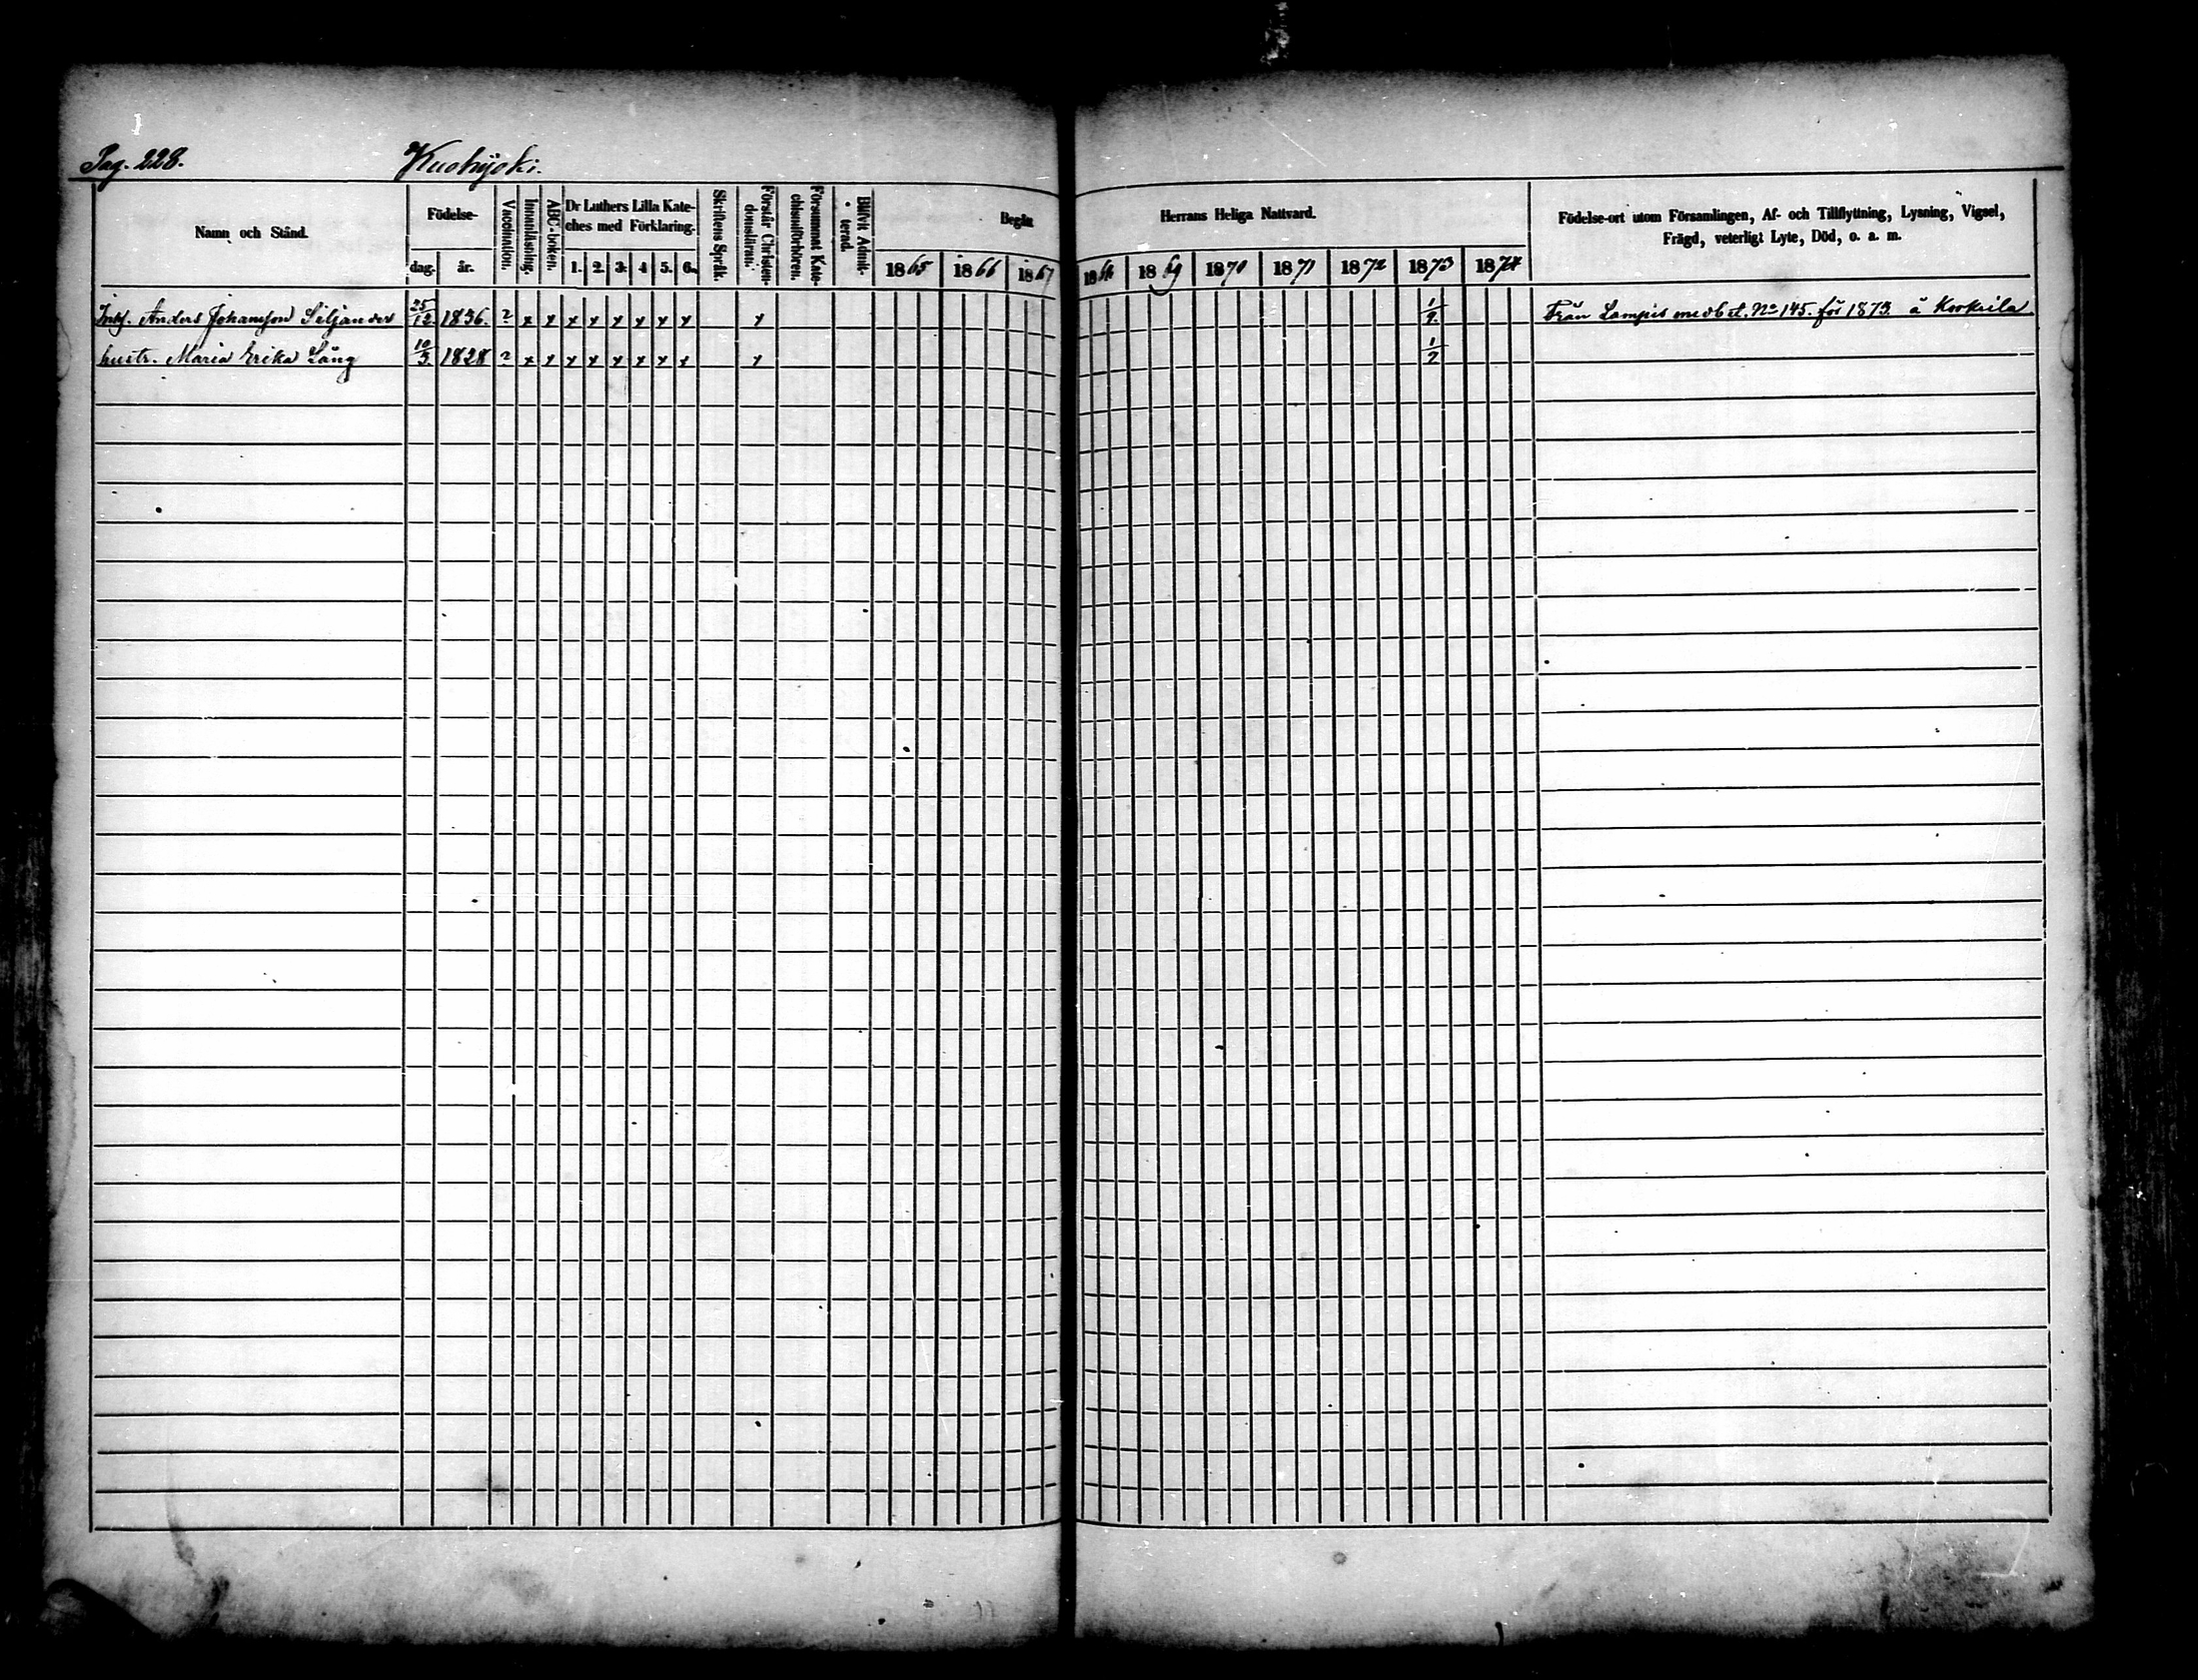 Pag. 228. Kuohijoki.
Namn och Stånd. Födelse- dag. år. Vaccination. Innanläsning. ABC-boken. Dr Luthers Lilla Kateches med Förklaring. 1. 2. 3. 4 5. 6. Skriftens Språk. Förstår Christendomsläran. Försummat Katechismiförhören. Blifvit Admitterad. Begån Herrans Heliga Nattvard. Födelse-ort utom Församlingen, Af- och Tillflyttning, Lysning, Vigsel,
Frägd, veterligt Lyte, Död, o. a. m.
1865 1866 1867 1868 1869 1870 1871 1872 1873 1874
Anders Johansson Siljander 25/12 1836. ? x x x x x x x x x Från Lampis med bet. No 145. för 1873. å
hustr. Maria Erika Lång 10/3 1828 ? x x x x x x x x x 1/2